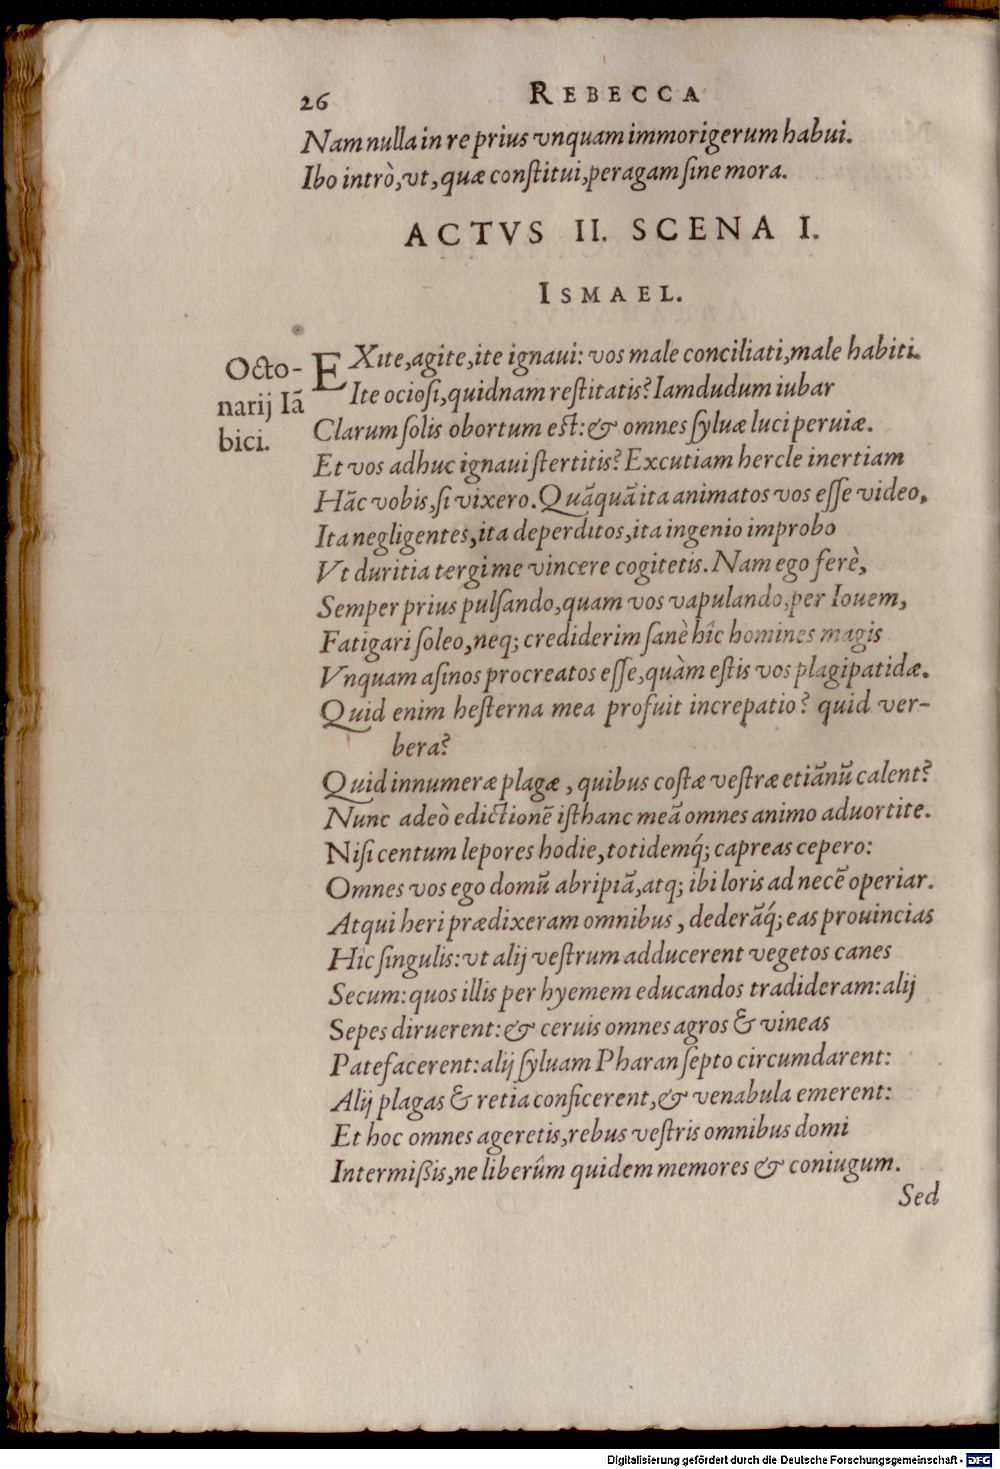 26 REBECCA
Nam nulla in re prius vnquam immorigerum habui.
Ibo intrò, vt, quæ conſtitui, peragam ſine mora.
ACTVS II. SCENA I.
ISMAEL.
Octo-
narij Iã
bici.
EXite, agite, ite ignaui: vos male conciliati, male habiti.
Ite ocioſi, quidnam reſtitatis? Iamdudum iubar
Clarum ſolis obortum est: & omnes ſyluæ luci peruiæ.
Et vos adhuc ignaui ſtertitis? Excutiam hercle inertiam
Hãc vobis, ſi vixero. Quãquã ita animatos vos eſſe video,
Ita negligentes, ita deperditos, ita ingenio improbo
Vt duritia tergi me vincere cogitetis. Nam ego ferè,
Semper prius pulſando, quam vos vapulando, per Iouem,
Fatigari ſoleo, neq; crediderim ſanè hîc homines magis
Vnquam aſinos procreatos eſſe, quàm eſtis vos plagipatidæ.
Quid enim heſterna mea profuit increpatio? quid ver-
bera?
Quid innumeræ plagæ, quibus coſtæ veſtræ etiãnũ calent?
Nunc adeò edictionẽ iſthanc meã omnes animo aduortite.
Niſi centum lepores hodie, totidemq́; capreas cepero:
Omnes vos ego domũ abripiã, atq; ibi loris ad necẽ operiar.
Atqui heri prædixeram omnibus, dederãq́; eas prouincias
Hic ſingulis: vt alij veſtrum adducerent vegetos canes
Secum: quos illis per hyemem educandos tradideram: alij
Sepes diruerent: & ceruis omnes agros & vineas
Patefacerent: alij ſyluam Pharan ſepto circumdarent:
Alij plagas & retia conficerent, & venabula emerent:
Et hoc omnes ageretis, rebus veſtris omnibus domi
Intermißis, ne liberûm quidem memores & coniugum.
Sed
Digitalisierung gefördert durch die Deutsche Forschungsgemeinschaft - DFG